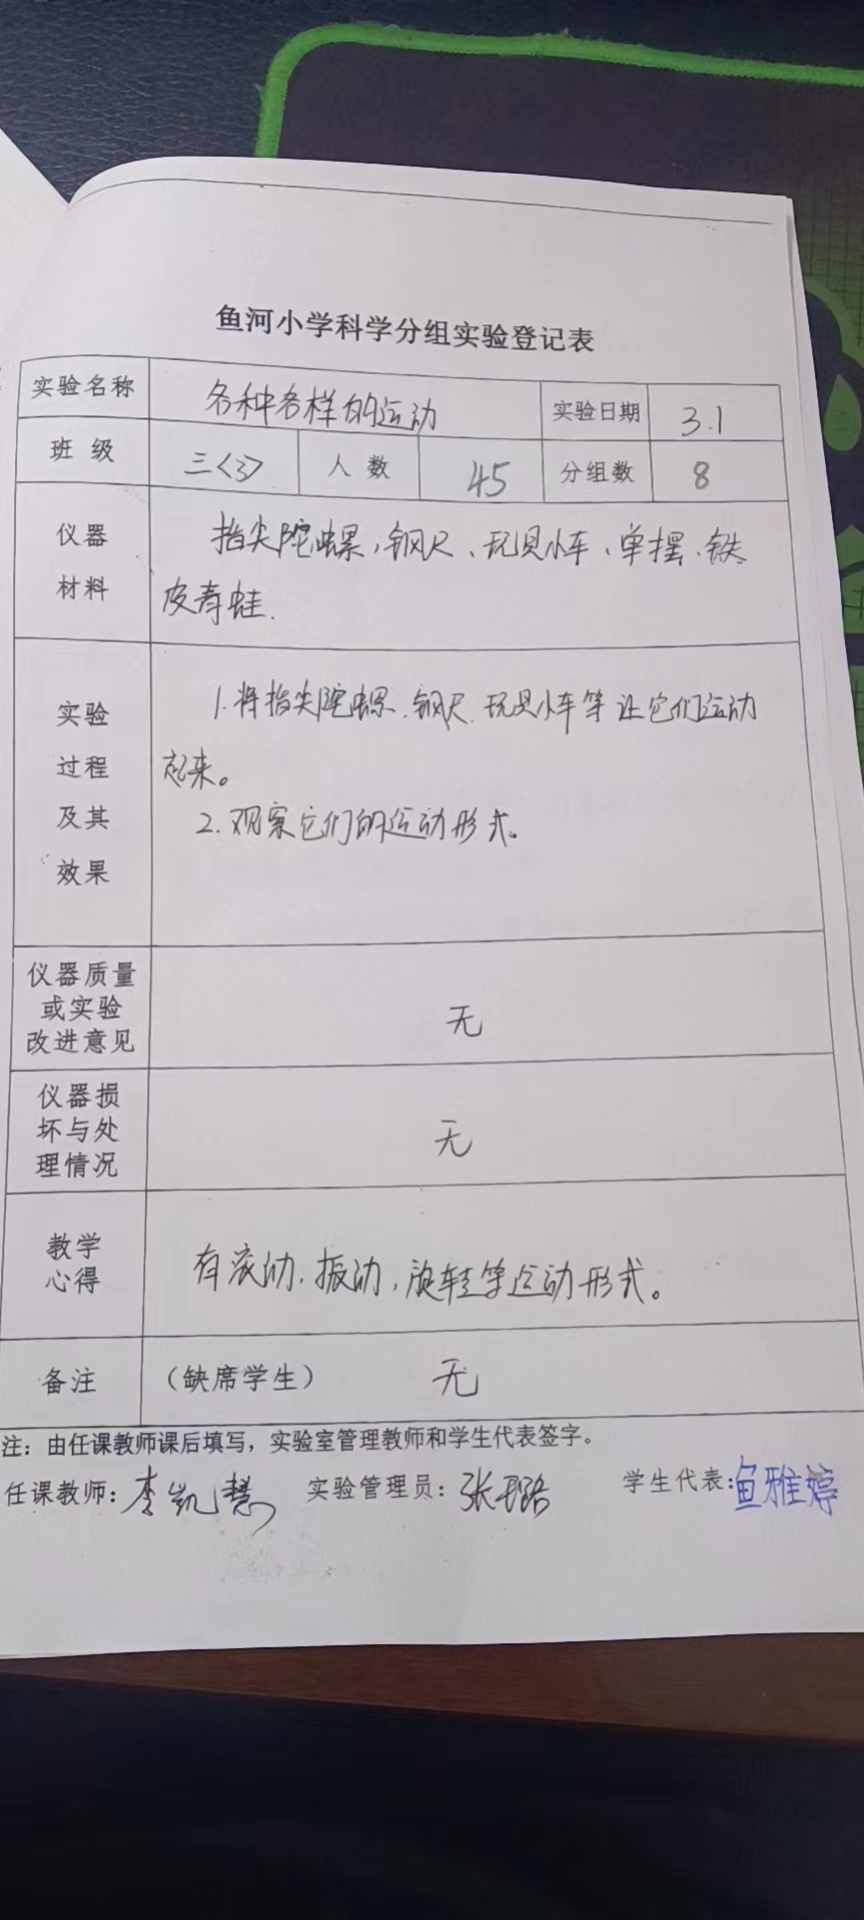 鱼河小学科学分组实验登记表
实验名称 各种各样的运动 实验日期 3.1
班级 三<3> 人数 45 分组数 8
仪器
材料
指尖陀螺,钢尺、玩具小车、单摆、铁
皮青蛙.
实验
过程
及其
效果
1.将指尖陀螺.钢尺.玩具小车等让它们运动
起来。
2.观察它们的运动形式。
仪器质量
或实验
改进意见
无
仪器损
坏与处
理情况
无
教学
心得
有滚动.振动,旋转等运动形式。
备注 (缺席学生) 无
注：由任课教师课后填写，实验室管理教师和学生代表签字。
任课教师：李凯慧 实验管理员：张璐 学生代表：鱼雅婷